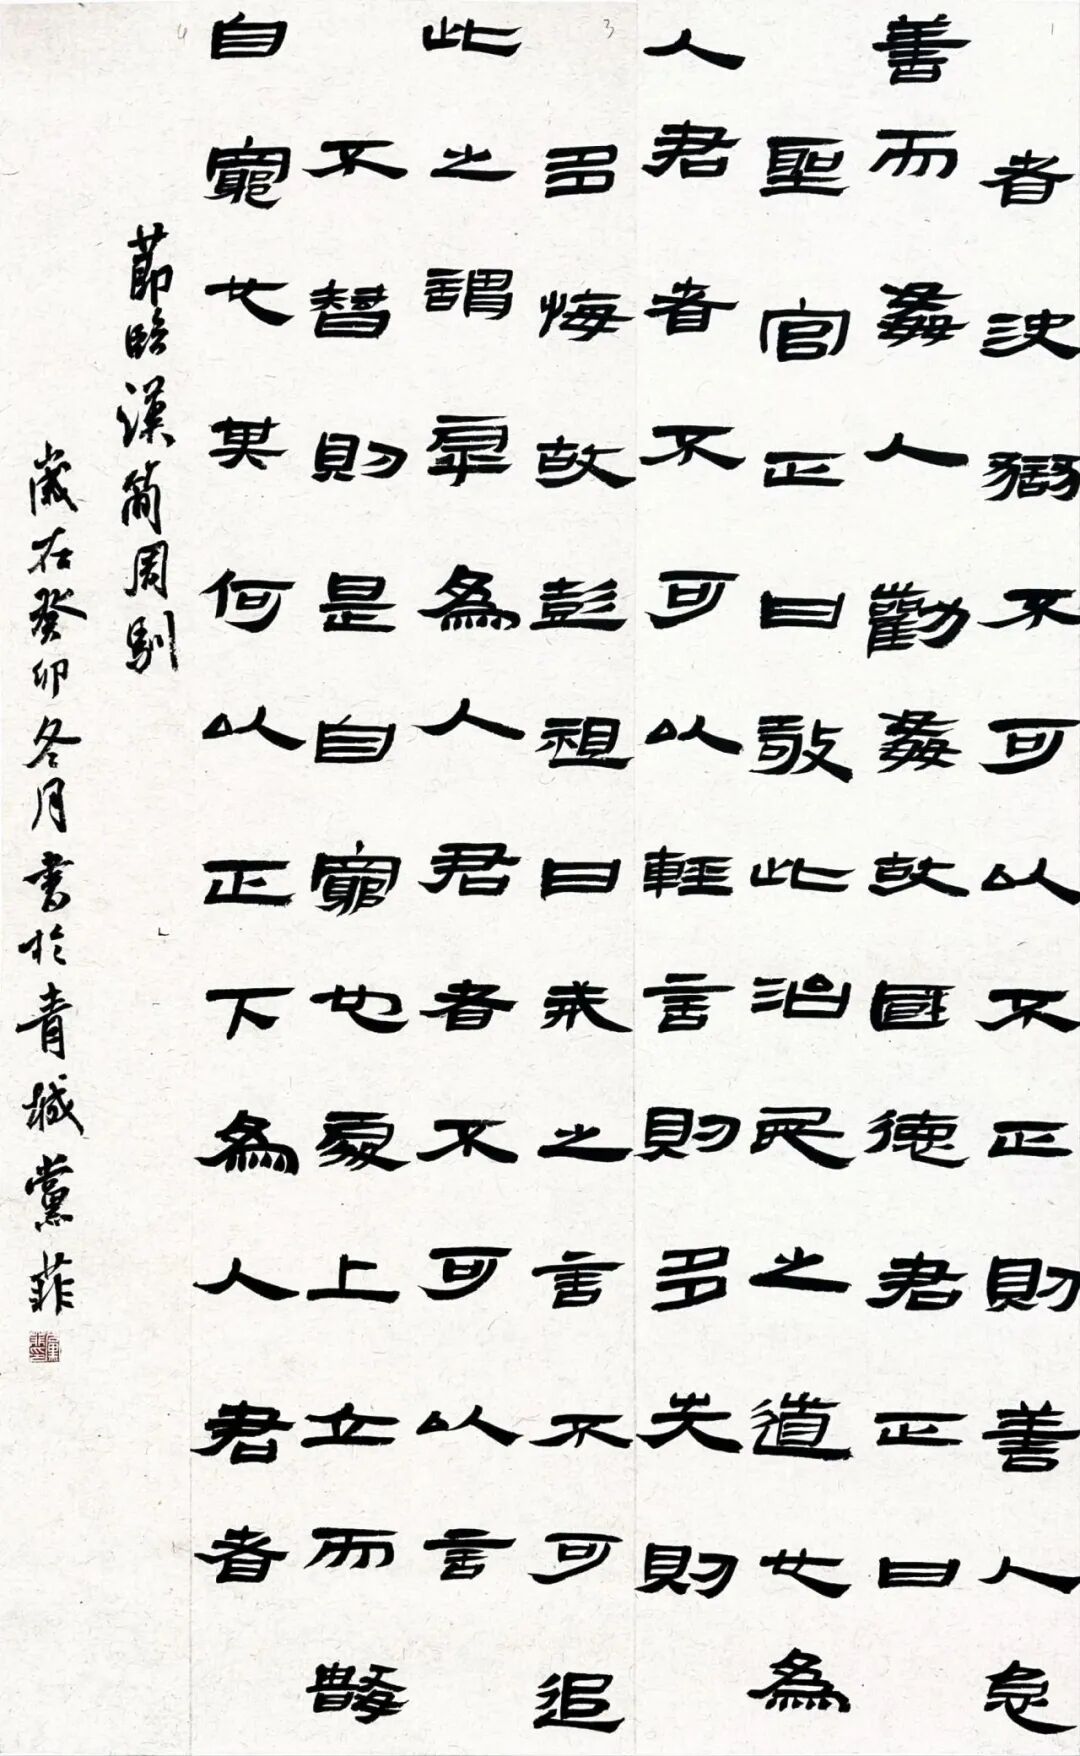 者決獄不可以不正則善人怠
善而姦人勸姦故國德君正曰
聖官正曰敬此治民之道也為
人君者不可以輕言則多失則
多悔故彭祖曰戒之言不可追
此之謂為人君者不可以言
不替則是自窮也處上立而
自窮也其何以正下為人君者
節臨漢簡周馴
歲在癸卯冬月書於青城黨菲